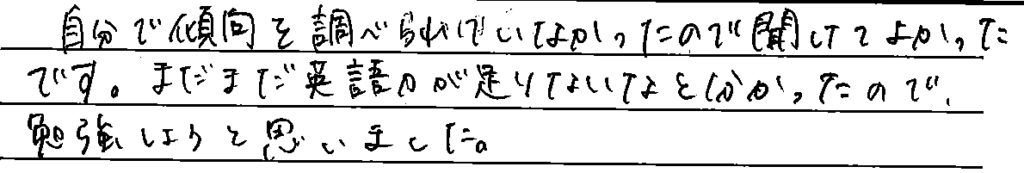 自分で傾向を調べられていなかったので聞けてよかった
です。まだまだ英語力が足りないなと分かったので、
勉強しようと思いました。